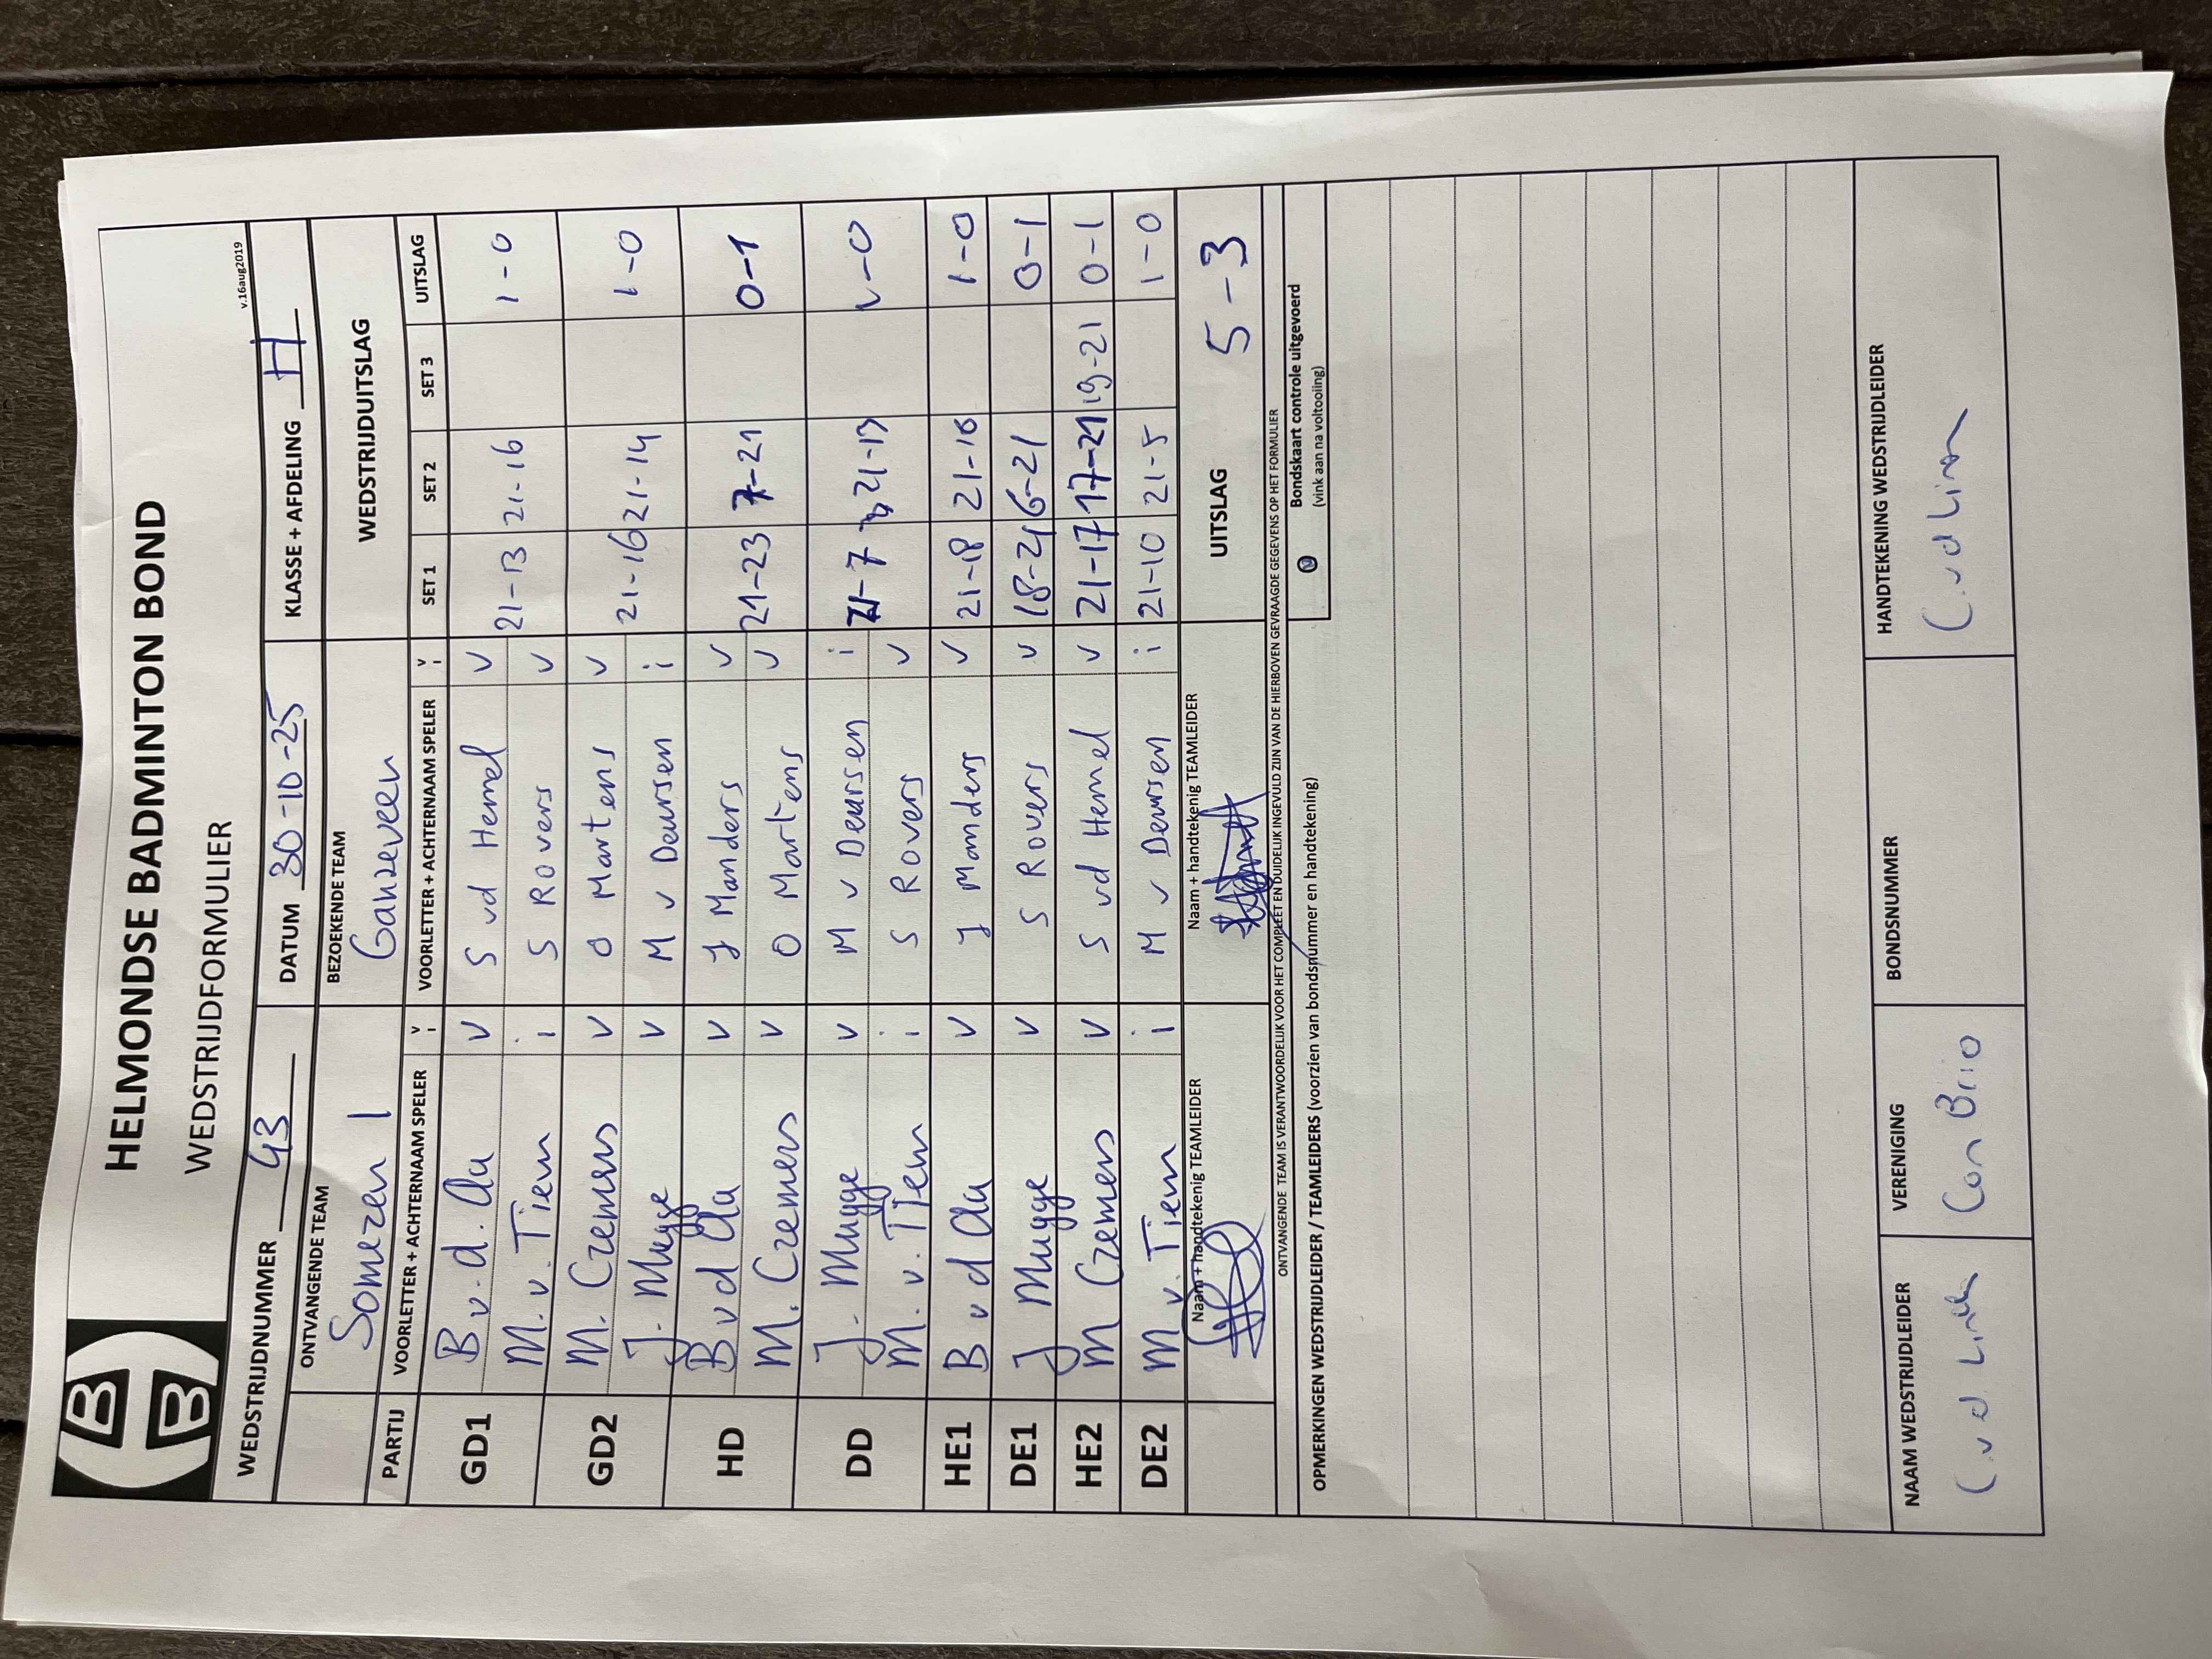 HELMONDSE BADMINTON BOND
WEDSTRIJDFORMULIER
v.16aug2019
WEDSTRIJDNUMMER 43 DATUM 30-10-25 KLASSE + AFDELING H
ONTVANGENDE TEAM BEZOEKENDE TEAM WEDSTRIJDUITSLAG
Someren 1 Ganzeveen
PARTIJ VOORLETTER + ACHTERNAAM SPELER V I VOORLETTER + ACHTERNAAM SPELER V I SET 1 SET 2 SET 3 UITSLAG
GD1 B v. d. Aa V S vd Hemel V 21-13 21-16 1-0
M. v. Tiem i S Rovers V
GD2 M. Czemers V O Martens V 21-16 21-14 1-0
J. Mugge V M v Deursen i
HD B vd Aa V J Manders V 21-23 7-21 0-1
M. Czemers V O Martens V
DD J. Mugge V M v Deursen i 21-7 21-13 1-0
M. v. Tiem i S Rovers V
HE1 B v d Aa V J Manders V 21-18 21-16 1-0
DE1 J Mugge V S Rovers V 18-21 6-21 0-1
HE2 M Czemers V S vd Hemel V 21-17 17-21 19-21 0-1
DE2 M v. Tiem i M v Deursen i 21-10 21-5 1-0
Naam + handtekenig TEAMLEIDER Naam + handtekenig TEAMLEIDER UITSLAG 5-3
ONTVANGENDE TEAM IS VERANTWOORDELIJK VOOR HET COMPLEET EN DUIDELIJK INGEVULD ZIJN VAN DE HIERBOVEN GEVRAAGDE GEGEVENS OP HET FORMULIER
OPMERKINGEN WEDSTRIJDLEIDER / TEAMLEIDERS (voorzien van bondsnummer en handtekening) Bondskaart controle uitgevoerd
(vink aan na voltooiing)
NAAM WEDSTRIJDLEIDER VERENIGING BONDSNUMMER HANDTEKENING WEDSTRIJDLEIDER
C v d Con Brio C. v d